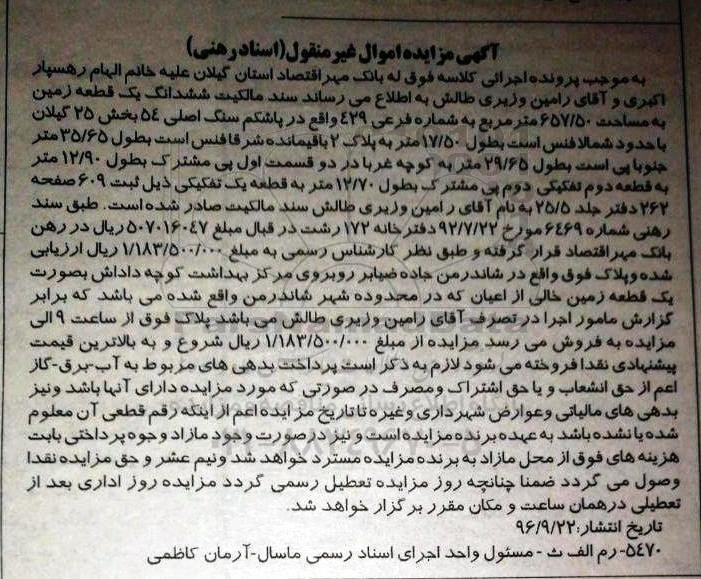 آگهی مزایده اموال غیر منقول(اسناد رهنی)
به موجب پرونده اجرائی کلاسه فوق له بانک مهر اقتصاد استان گیلان علیه خانم الهام رهسپار
اکبری و آقای رامین وزیری طالش به اطلاع می رساند سند مالکیت ششدانگ یک قطعه زمین
به مساحت ۶۵۷/۵۰ متر مربع به شماره فرعی ۴۲۹ واقع در پاشکم سنگ اصلی ۵۴ بخش ۲۵ گیلان
با حدود شمالا فنس است بطول ۱۷/۵۰ متر به پلاک ۲ باقیمانده شرقا فنس است بطول ۳۵/۶۵ متر
جنوبا پی است بطول ۲۹/۶۵ متر به کوچه غربا در دو قسمت اول پی مشترک بطول ۱۲/۹۰ متر
به قطعه دوم تفکیکی دوم پی مشترک بطول ۱۲/۷۰ متر به قطعه یک تفکیکی ذیل ثبت ۶۰۹ صفحه
۲۶۲ دفتر جلد ۲۵/۵ به نام آقای رامین وزیری طالش سند مالکیت صادر شده است. طبق سند
رهنی شماره ۶۴۶۹ مورخ ۹۲/۷/۲۲ دفتر خانه ۱۷۲ رشت در قبال مبلغ ۵۰۷۰۱۶۰۴۷ ریال در رهن
بانک مهر اقتصاد قرار گرفته و طبق نظر کارشناس رسمی به مبلغ ۱/۱۸۳/۵۰۰/۰۰۰ ریال ارزیابی
شده و پلاک فوق واقع در شاندرمن جاده ضیابر روبروی مرکز بهداشت کوچه داداش بصورت
یک قطعه زمین خالی از اعیان که در محدوده شهر شاندرمن واقع شده می باشد که برابر
گزارش مامور اجرا در تصرف آقای رامین وزیری طالش می باشد پلاک فوق از ساعت ۹ الی
مزایده به فروش می رسد مزایده از مبلغ ۱/۱۸۳/۵۰۰/۰۰۰ ریال شروع و به بالاترین قیمت
پیشنهادی نقدا فروخته می شود لازم به ذکر است پرداخت بدهی های مربوط به آب-برق-گاز
اعم از حق انشعاب و یا حق اشتراک و مصرف در صورتی که مورد مزایده دارای آنها باشد و نیز
بدهی های مالیاتی و عوارض شهرداری و غیره تا تاریخ مزایده اعم از اینکه رقم قطعی آن معلوم
شده یا نشده باشد به عهده برنده مزایده است و نیز در صورت وجود مازاد وجوه پرداختی بابت
هزینه های فوق از محل مازاد به برنده مزایده مسترد خواهد شد و نیم عشر و حق مزایده نقدا
وصول می گردد ضمنا چنانچه روز مزایده تعطیل رسمی گردد مزایده روز اداری بعد از
تعطیلی در همان ساعت و مکان مقرر برگزار خواهد شد.
تاریخ انتشار:۹۶/۹/۲۲
۵۴۷۰- رم الف ث - مسئول واحد اجرای اسناد رسمی ماسال-آرمان کاظمی